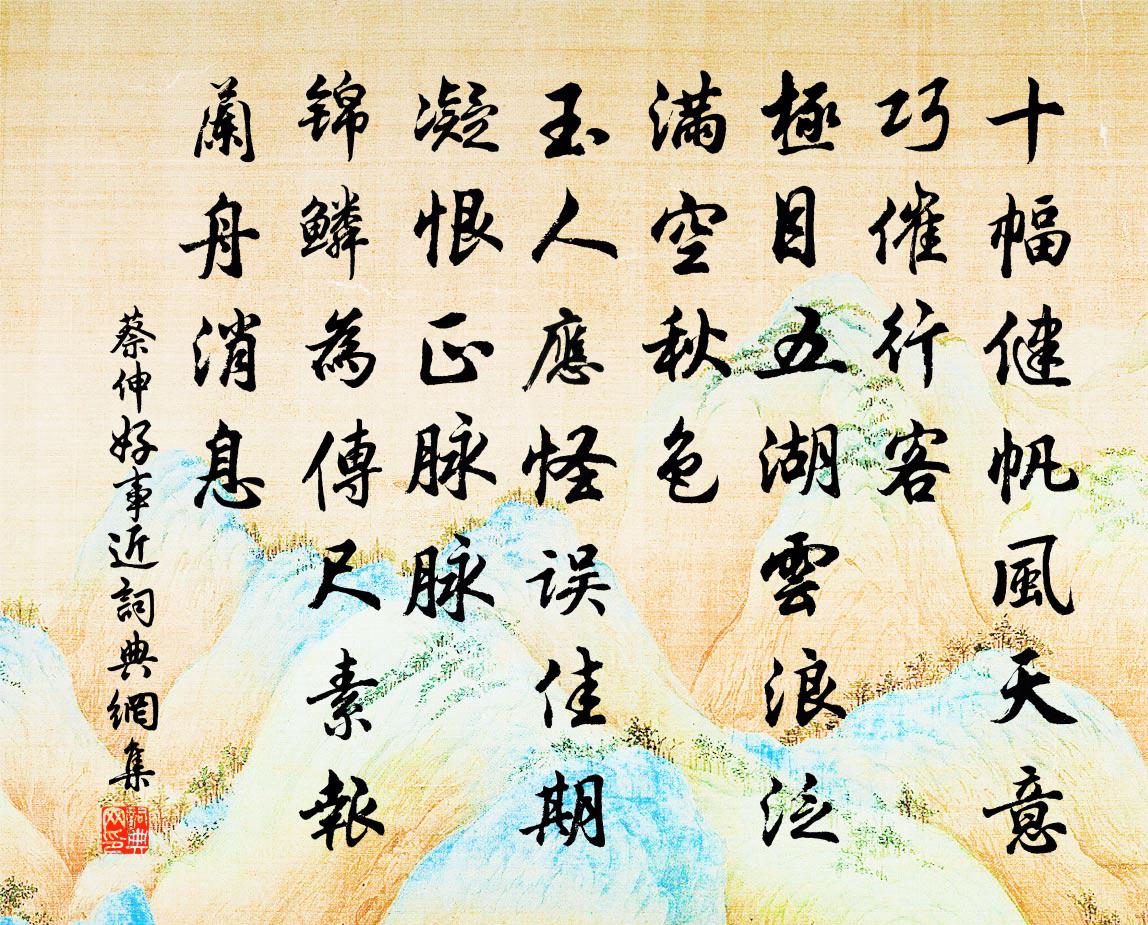 十幅健帆風天意
巧催行客
極目五湖雲浪泛
滿空秋色
玉人應怪误佳期
凝恨正脉脉
锦鳞為傳尺素報
蘭舟消息
蔡伸好事近詞典網集
詞典網印